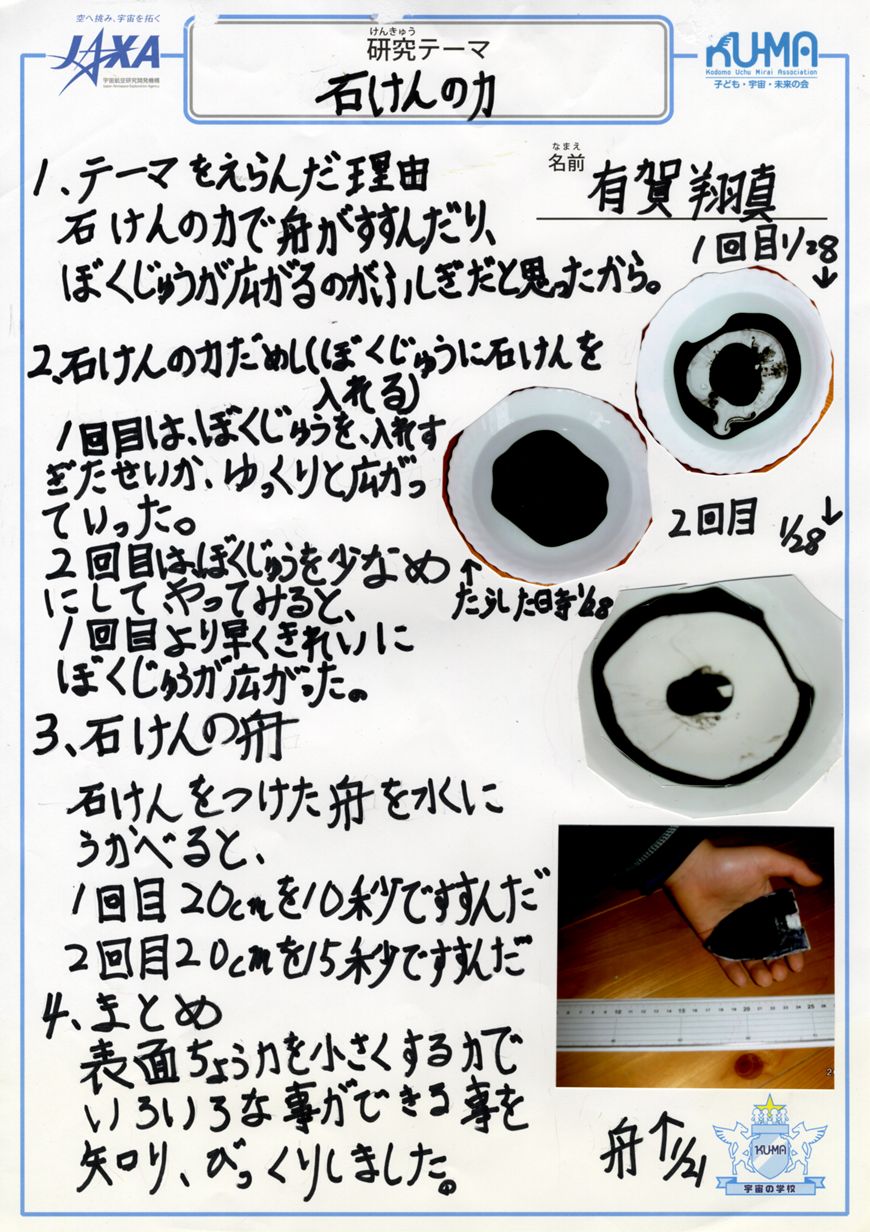 空へ挑み、宇宙を拓く
JAXA
宇宙航空研究開発機構
Japan Aerospace Exploration Agency
けんきゅう
研究テーマ
石けんの力
KU-MA
Kodomo Uchu Mirai Association
子ども・宇宙・未来の会
なまえ
名前
有賀翔真
1、テーマをえらんだ理由
石けんの力で舟がすすんだり、
ぼくじゅうが広がるのがふしぎだと思ったから。
1回目1/28
↓
2、石けんの力だめし(ぼくじゅうに石けんを
入れる)
1回目は、ぼくじゅうを、入れす
ぎたせいか、ゆっくりと広がっ
ていった。
2回目は、ぼくじゅうを少なめ
にして、やってみると、
1回目より早くきれいに
ぼくじゅうが広がった。
↑
たらした時1/28
2回目 1/28↓
3、石けんの舟
石けんをつけた舟を水に
うかべると、
1回目20cmを10秒ですすんだ
2回目20cmを15秒ですすんだ
4、まとめ
表面ちょう力を小さくする力で
いろいろな事ができる事を
知り、びっくりしました。
舟↑1/21
KU-MA
宇宙の学校